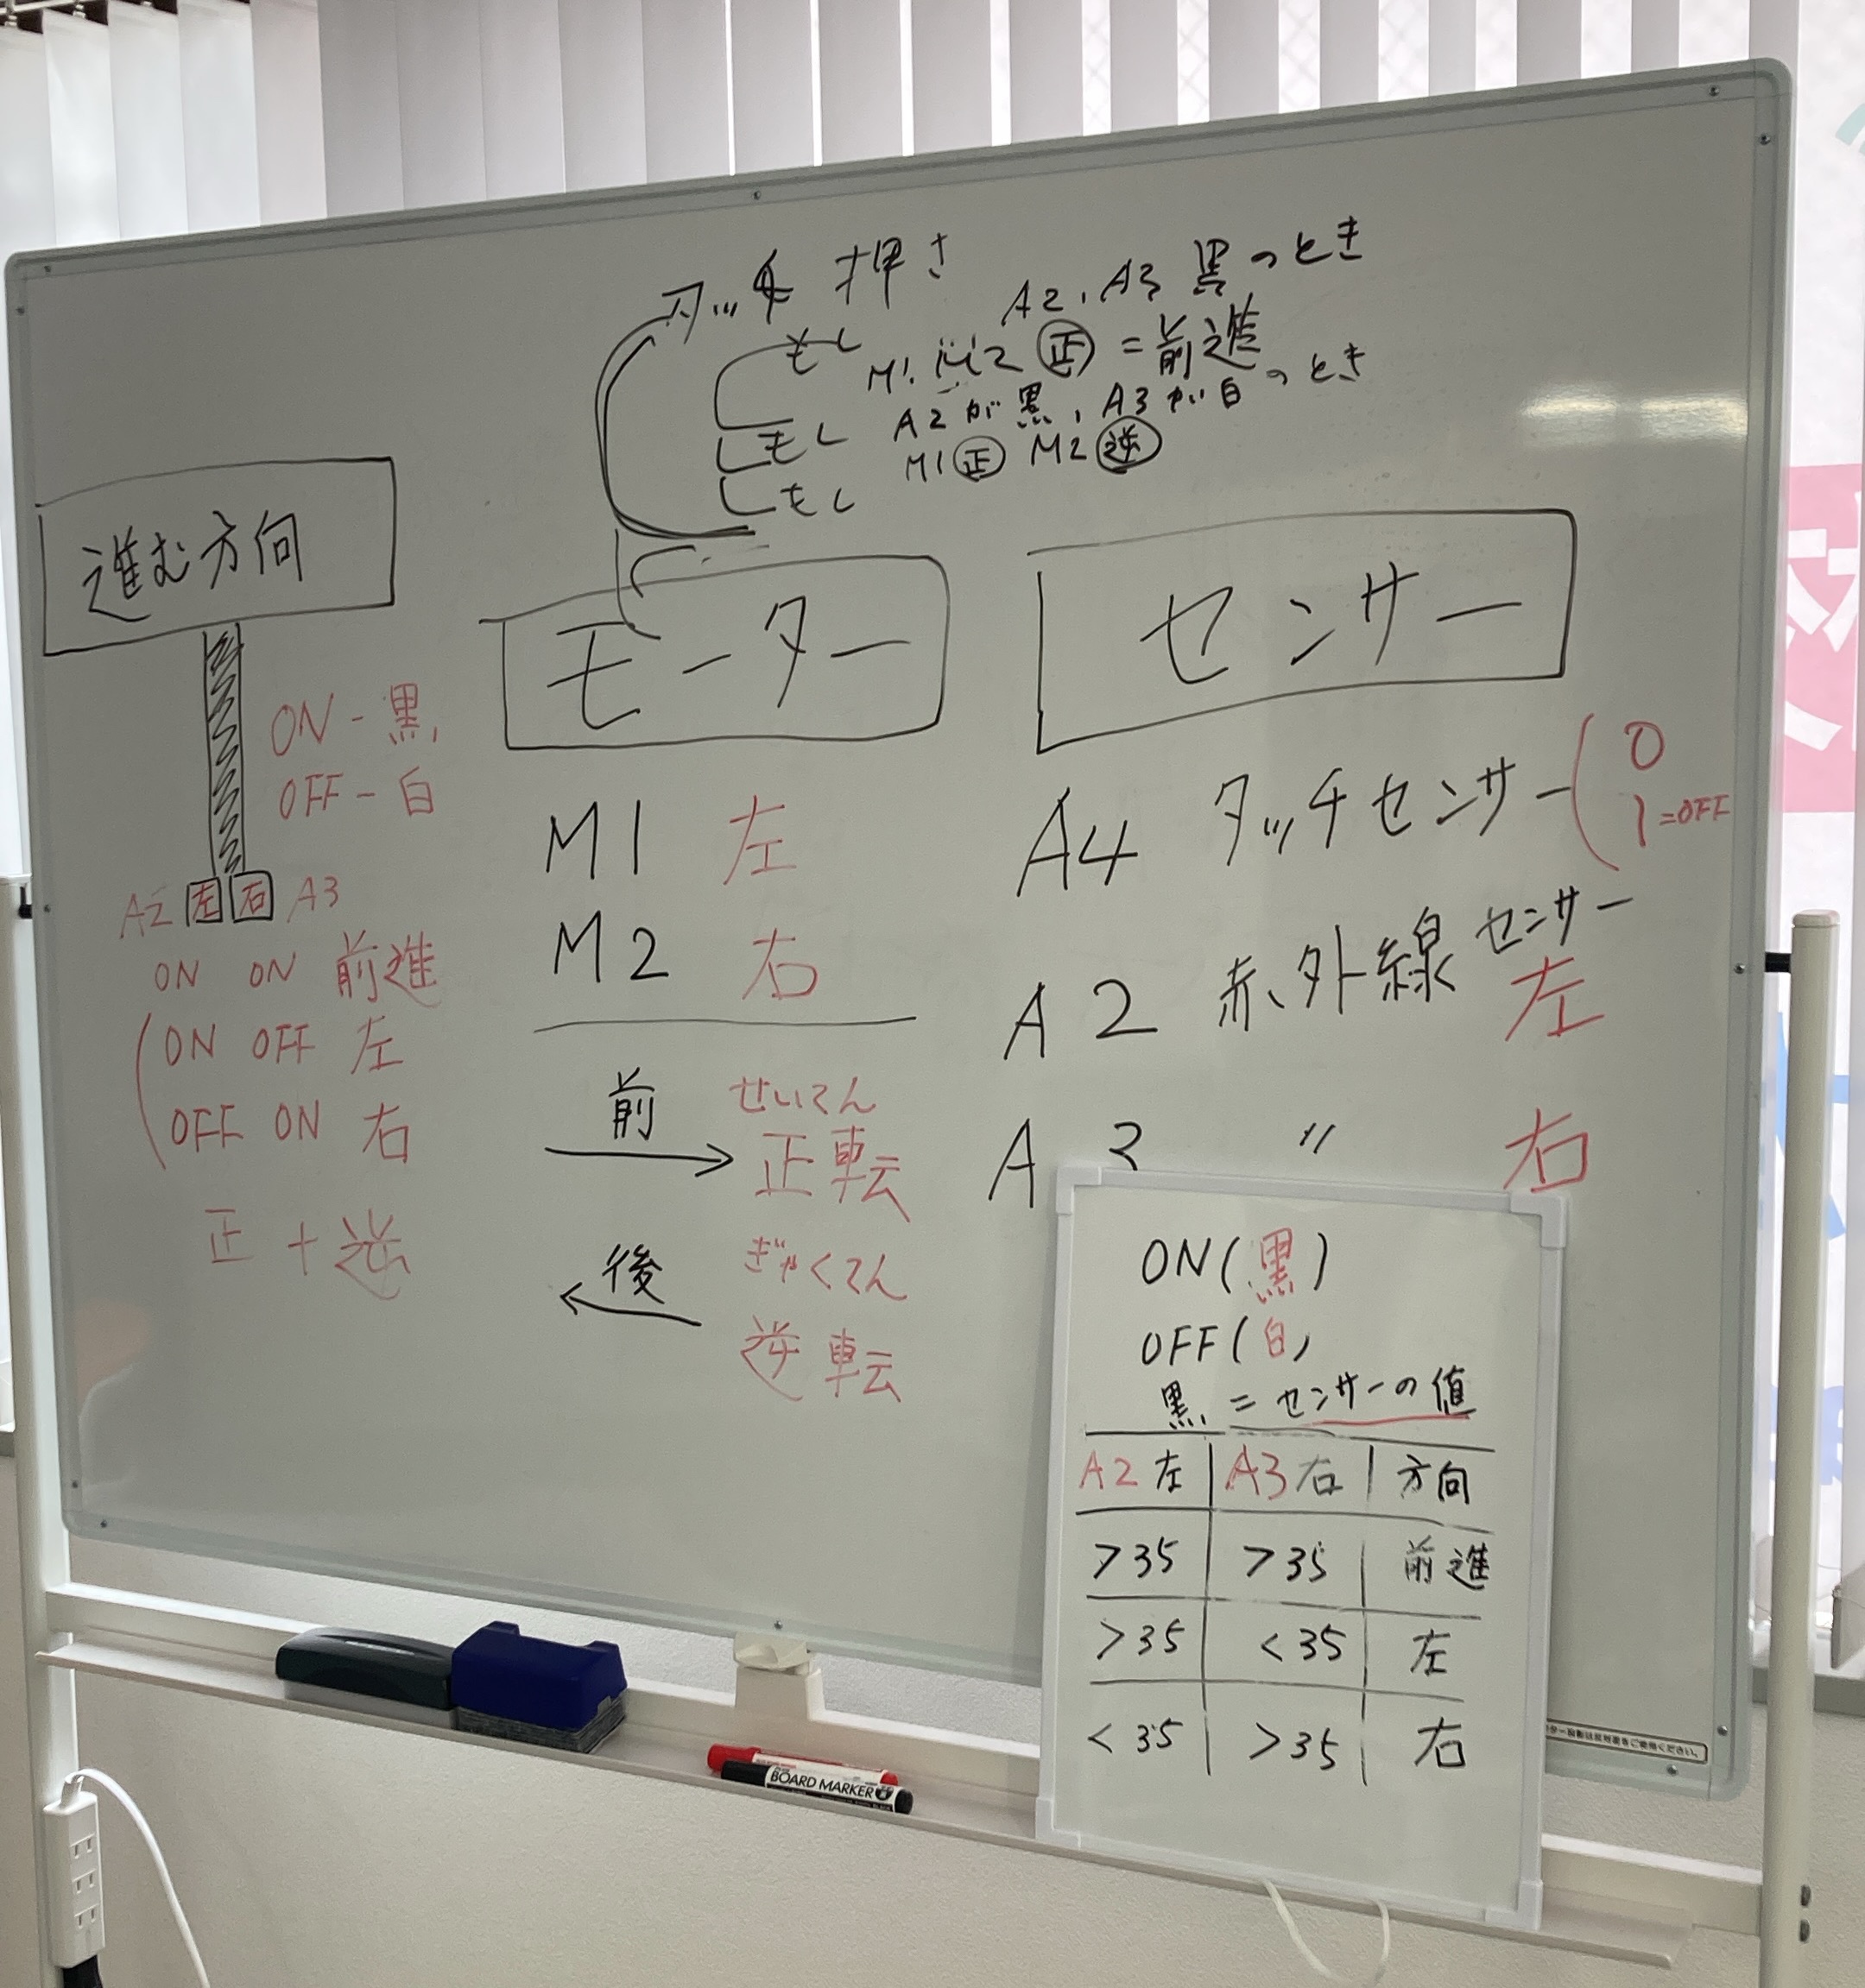 タッチ 押さ
もし A2、A3 黒のとき
M1. M2 正 = 前進
もし A2が黒、A3が白のとき
M1 正 M2 逆
もし
進む方向
ON - 黒
OFF - 白
A2 左 右 A3
ON ON 前進
ON OFF 左
OFF ON 右
正 + 逆
モーター
M1 左
M2 右
前 せいてん
正転
後 ぎゃくてん
逆転
センサー
A4 タッチセンサー 0
1=OFF
A2 赤外線センサー 左
A3 〃 右
ON(黒)
OFF(白)
黒 = センサーの値
A2左 A3右 方向
>35 >35 前進
>35 <35 左
<35 >35 右
BOARD MARKER